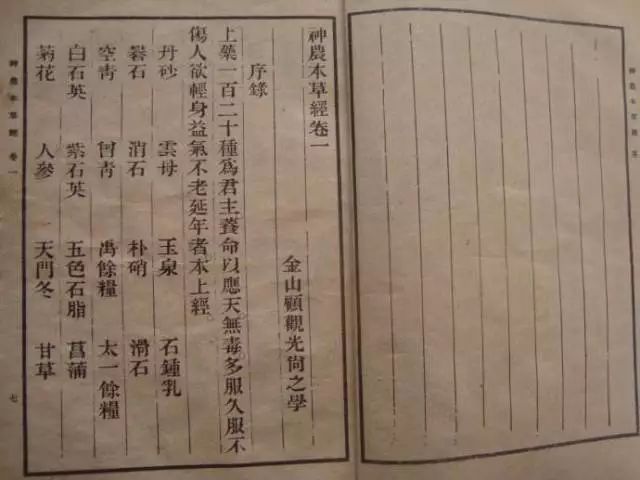 神農本草經
神農本草經卷一
金山顧觀光尙之學
序錄
上藥一百二十種爲君主養命以應天無毒多服久服不
傷人欲輕身益氣不老延年者本上經
丹砂 雲母 玉泉 石鍾乳
礬石 消石 朴硝 滑石
空青 曾青 禹餘糧 太一餘糧
白石英 紫石英 五色石脂 菖蒲
菊花 人參 天門冬 甘草
神農本草經 卷一 七